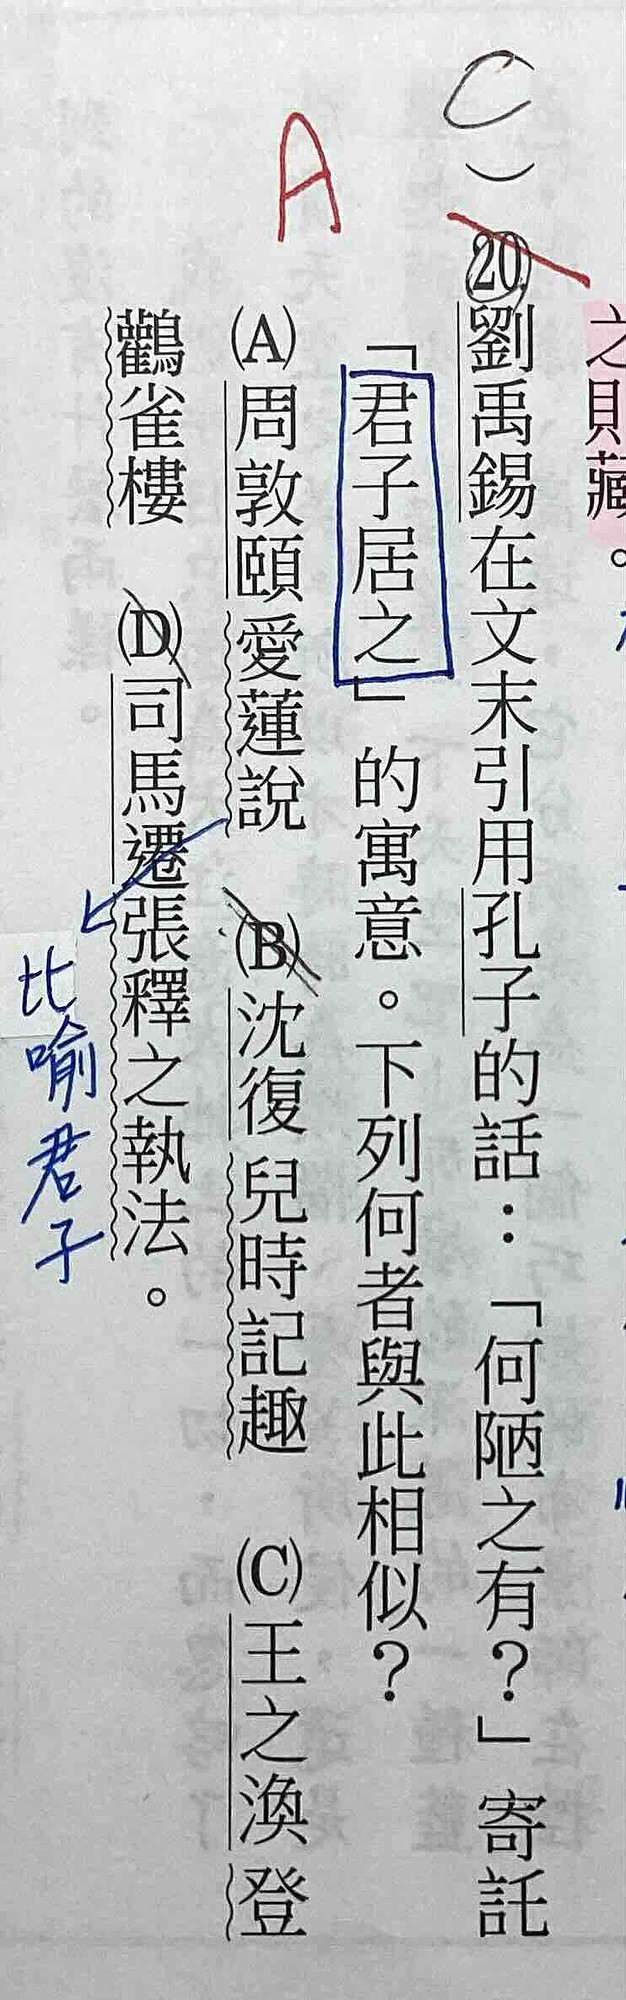 之則藏。
C）20.劉禹錫在文末引用孔子的話：「何陋之有？」寄託
「君子居之」的寓意。下列何者與此相似？
A
(A)周敦頤愛蓮說 (B)沈復兒時記趣 (C)王之渙登
鸛雀樓 (D)司馬遷張釋之執法。
比喻君子